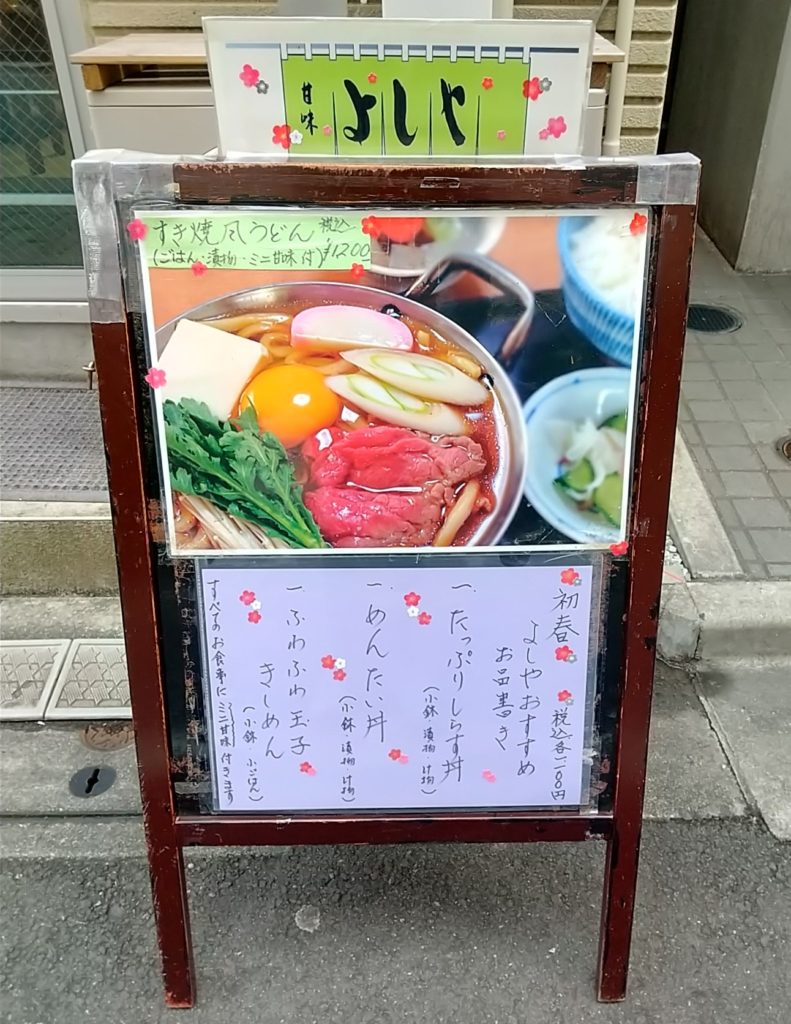 甘味
よしや
すき焼風うどん 税込
(ごはん・漬物・ミニ甘味付) ¥1200
初春 税込各一二〇〇円
よしやおすすめ
お品書き
一、たっぷりしらす丼
(小鉢・漬物・汁物)
一、めんたい丼
(小鉢・漬物・汁物)
一、ふわふわ玉子
きしめん
(小鉢・小ごはん)
すべてのお食事にミニ甘味付きます